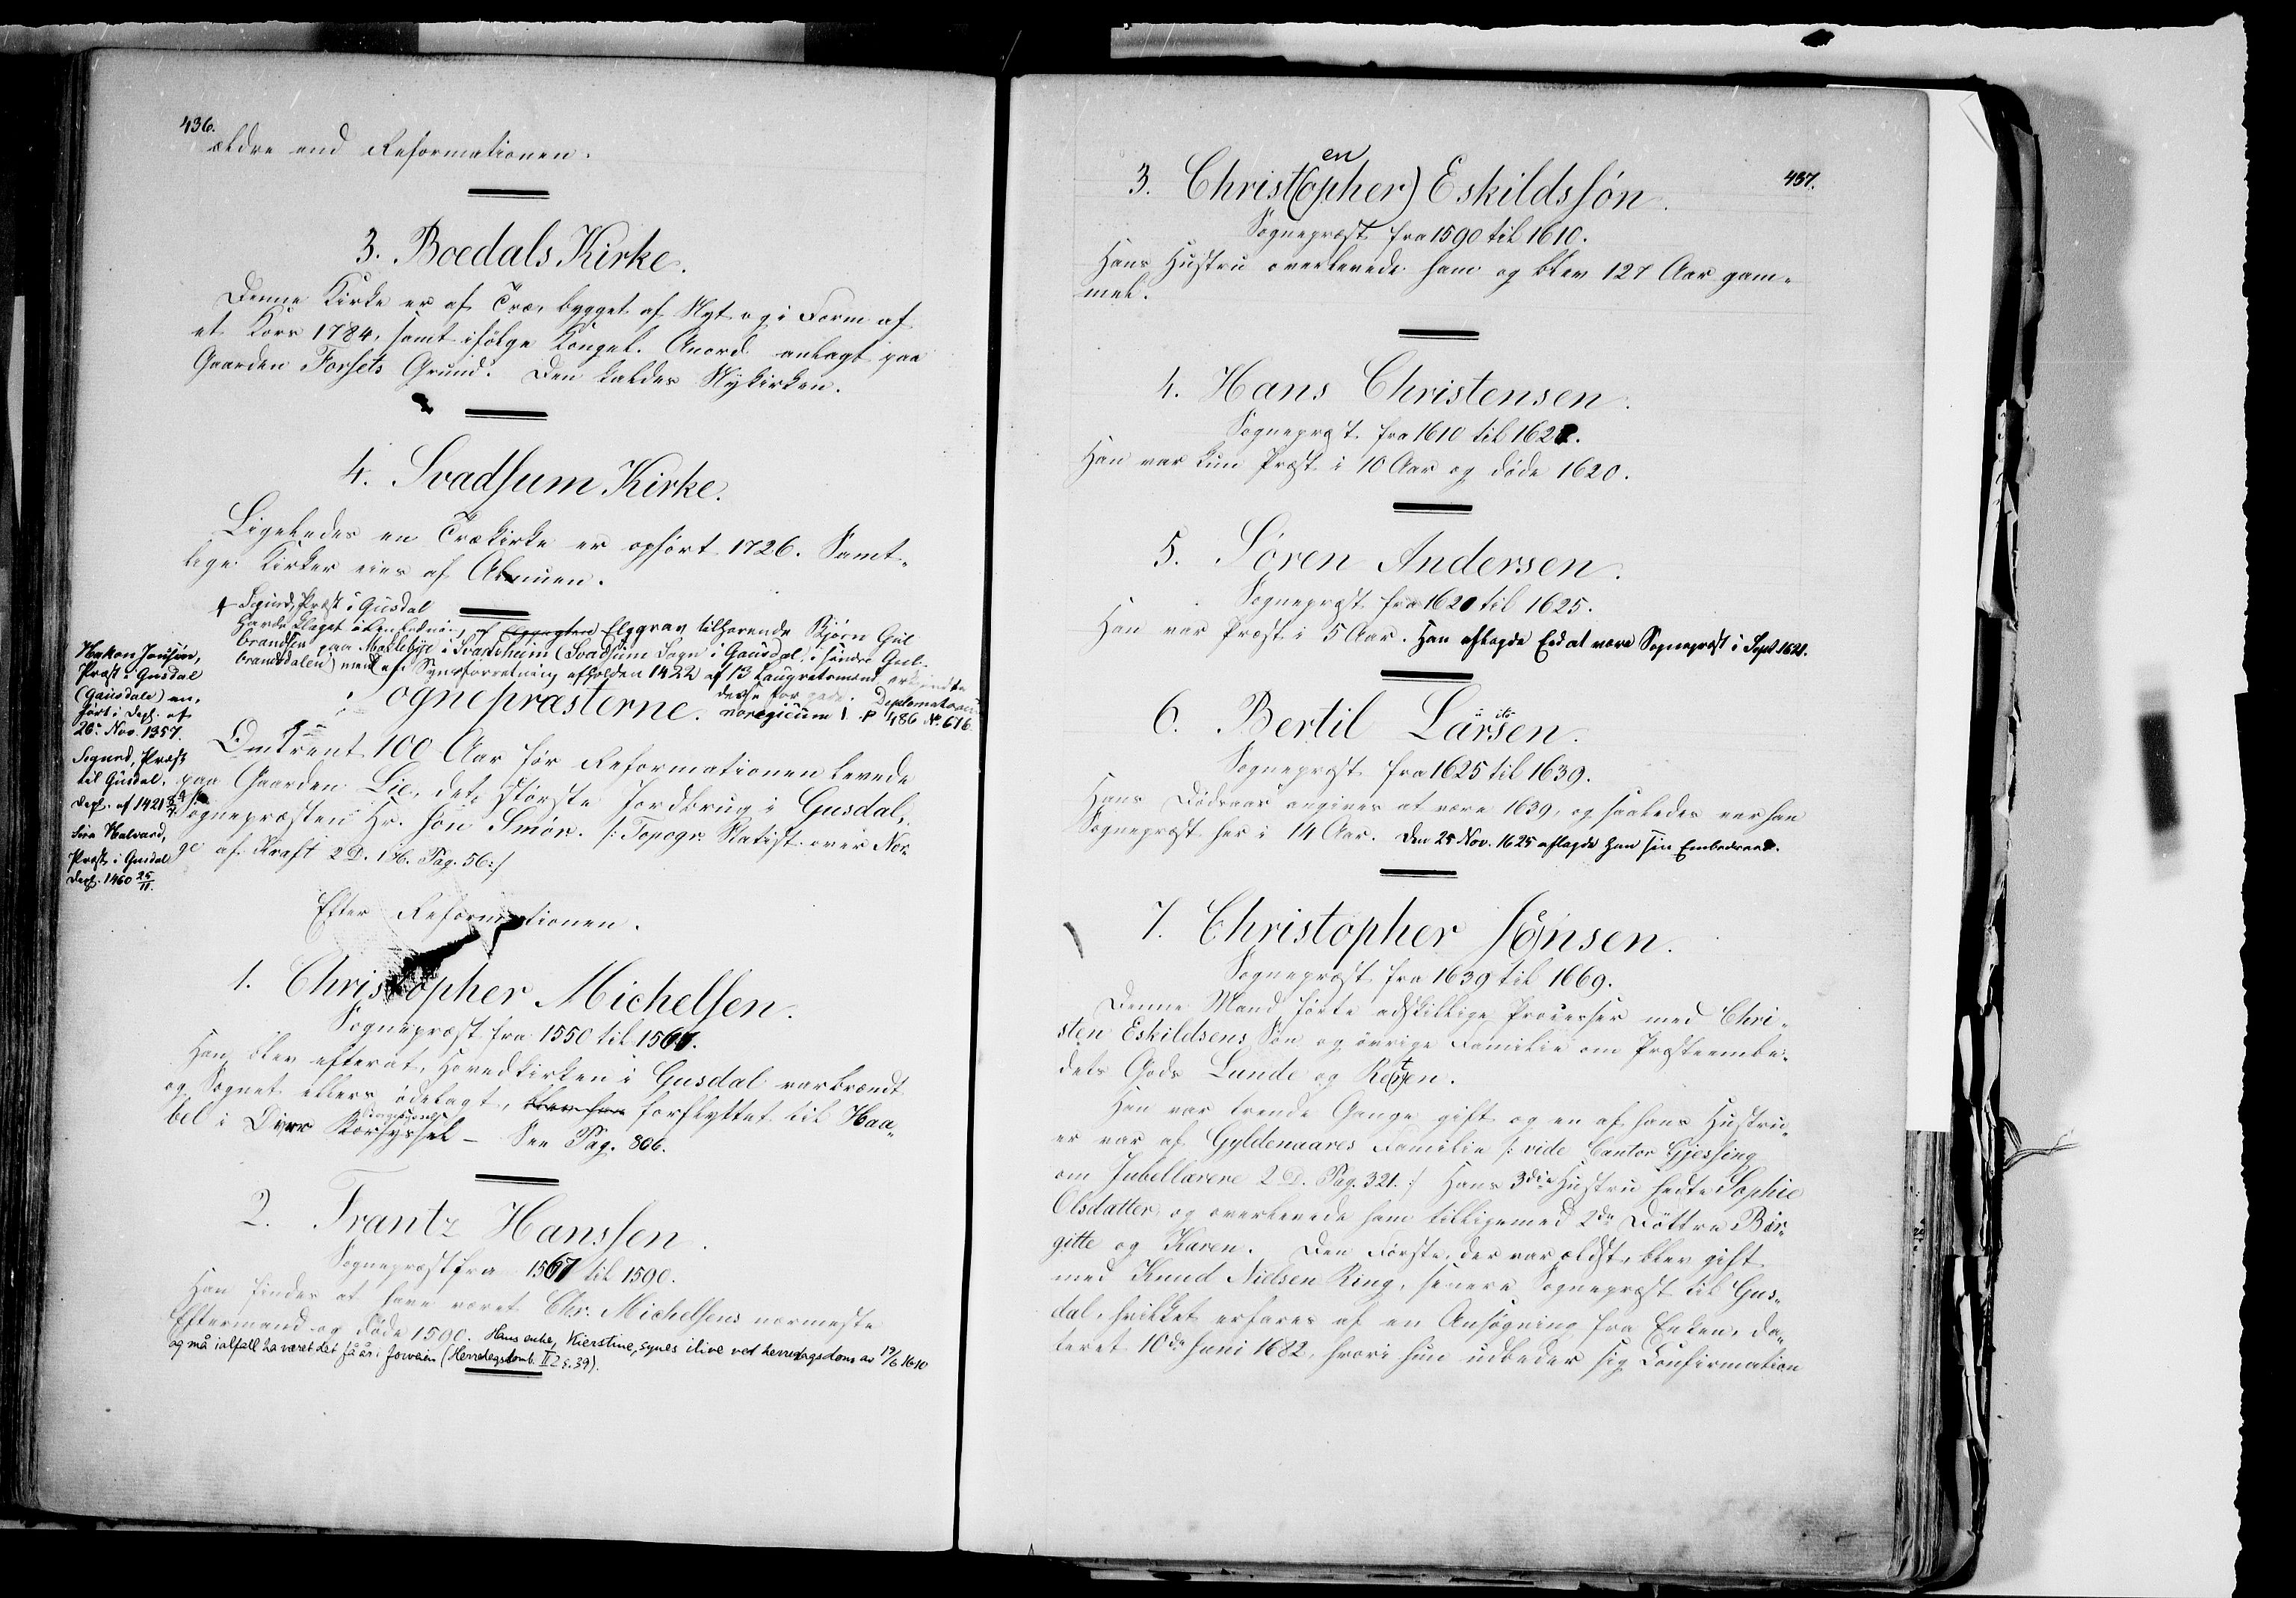 436.
ældre end Reformationen.
3. Boedals Kirke.
Denne Kirke er af Træ, bygget af Nyt og i Form af
et Kors 1784, samt ifölge Kongel. Anord. anlagt paa
Gaarden Forsets Grund. Den kaldes Nykirken.
4. Svadsum Kirke.
Ligeledes en Trækirke er opfört 1726. Samt-
lige Kirker eies af Almuen.
Sigurd, Præst i Gusdal
havde klaget over af Elggrav tilhørende Bjørn Gul
brandsen paa Mækkebye i Svartheim (Svadsum Sogn i Gausdal, i søndre Gul-
brandsdalen) men efr Synsforretning afholden 1422 af 13 Laugretsmænd erkjendte
desse for gode. Diplomatarium
noregicum I. P 486 No 676
Sognepræsterne.
Hakon Jonsön,
Præst i Gusdal
(Gausdale) an-
fört i Dipl. af
26. Nov. 1357.
Sigurd, Præst
til Gusdal,
Dipl. af 1421
Sira Halvard,
Præst i Gusdal
Dipl. 1460 25/11.
Omtrent 100 Aar för Reformationen levede
paa Gaarden Lie, det störste Jordbrug i Gusdal,
Sognepræsten Hr. Jon Smör. /: Topogr. Statist. over Nor-
ge af Kraft 2 D. 1 H. Pag. 56 :/
Efter Reformationen.
1. Christopher Michelsen.
Sognepræst fra 1550 til 1567.
Han blev efterat Hovedkirken i Gusdal var brændt
og Sognet ellers ödelagt, blev han forflyttet til Haa-
bel i Övre Borgesyssel – See Pag. 806.
2. Frantz Hanssen.
Sognepræst fra 1567 til 1590.
Han findes at have været Chr. Michelsens nærmeste
Eftermand og döde 1590. Hans enke, Kierstine, synes ilive ved herredagsdom av 19/6 1610
og må ialfall ha været det få år i forveien (Herredagsdomb. II 2 s. 39).
437.
en
3. Christ(opher) Eskildssön.
Sognepræst fra 1590 til 1610.
Hans Hustru overlevede ham og blev 127 Aar gam-
mel.
4. Hans Christensen.
Sognepræst fra 1610 til 1621.
Han var kun Præst i 10 Aar og döde 1620.
5. Sören Andersen.
Sognepræst fra 1620 til 1625.
Han var Præst i 5 Aar. Han aflagde Eed at være Sognepræst i Sept 1621.
6. Bertil Larsen.
Sognepræst fra 1625 til 1639.
Hans Dödsaar angives at være 1639, og saaledes var han
Sognepræst her i 14 Aar. Den 25 Nov. 1625 aflagde han sin Embedseed.
7. Christopher Jönsen.
Sognepræst fra 1639 til 1669.
Denne Mand förte adskillige Processer med Chri-
sten Eskildsens Sön og övrige Familie om Præsteembe-
dets Gods Lunde og
Han var trende Gange gift og en af hans Hustru-
er var af Gyldenaares Familie /: vide Cantor Gjessing
om Jubellærere 2 D. Pag. 321. :/ Hans 3die Hustru hedte Sophie
Olsdatter og overlevede ham tilligemed 2de Döttre Bir-
gitte og Karen. Den Förste, der var ældst, blev gift
med Knud Nielsen Ring, senere Sognepræst til Gus-
dal, hvilket erfares af en Ansögning fra Enken, da-
teret 10de Juni 1682, hvori hun udbeder sig Confirmation